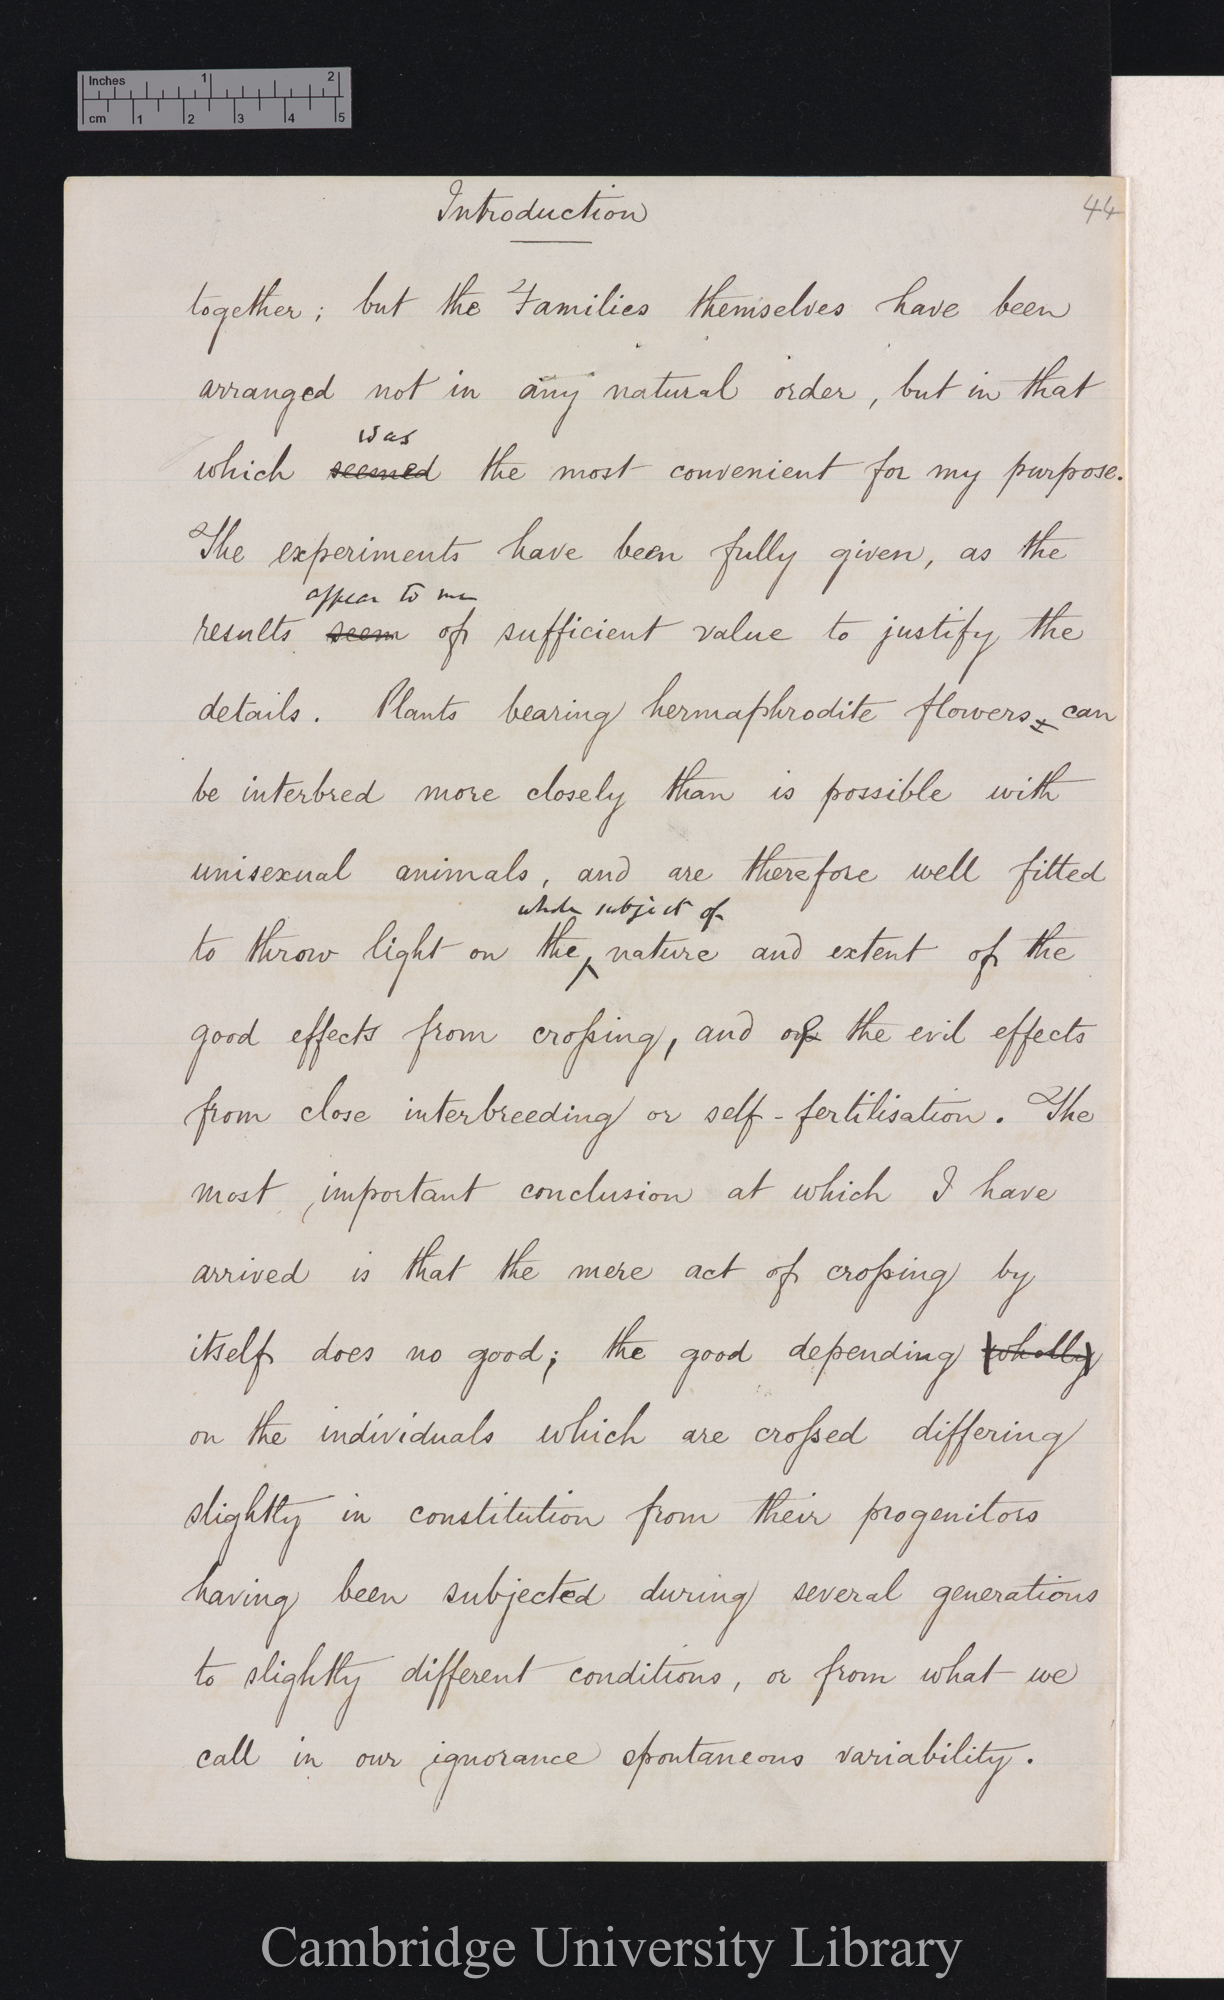 Inches 1 2
cm 1 2 3 4 5
Introduction
44
together; but the Families themselves have been
arranged not in any natural order, but in that
was
which seemed the most convenient for my purpose.
The experiments have been fully given, as the
appear to me
results seem of sufficient value to justify the
details. Plants bearing hermaphrodite flowers can
be interbred more closely than is possible with
unisexual animals, and are therefore well fitted
whole subject of
to throw light on the nature and extent of the
good effects from crossing, and of the evil effects
from close interbreeding or self-fertilisation. The
most important conclusion at which I have
arrived is that the mere act of crossing by
itself does no good; the good depending wholly
on the individuals which are crossed differing
slightly in constitution from their progenitors
having been subjected during several generations
to slightly different conditions, or from what we
call in our ignorance spontaneous variability.
Cambridge University Library